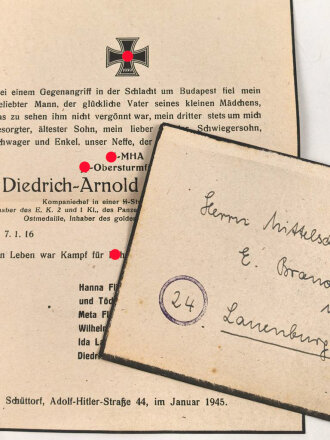 ei einem Gegenangriff in der Schlacht um Budapest fiel mein
eliebter Mann, der glückliche Vater seines kleinen Mädchens,
as zu sehen ihm nicht vergönnt war, mein dritter stets um mich
esorgter, ältester Sohn, mein lieber Schwiegersohn,
chwager und Enkel, unser Neffe, der
-MHA
-Obersturmf
Diedrich-Arnold
Kompaniechef in einer H-St
haber des E. K. 2 und 1 Kl., des Panze
Ostmedaille, Inhaber des golde
7. 1. 16
n Leben war Kampf für
Hanna Fl
und Töd
Meta Fl
Wilhelm
Ida La
Diedr
Schüttorf, Adolf-Hitler-Straße 44, im Januar 1945.
Herrn Mittelsc
E. Brand
24
Lauenburg